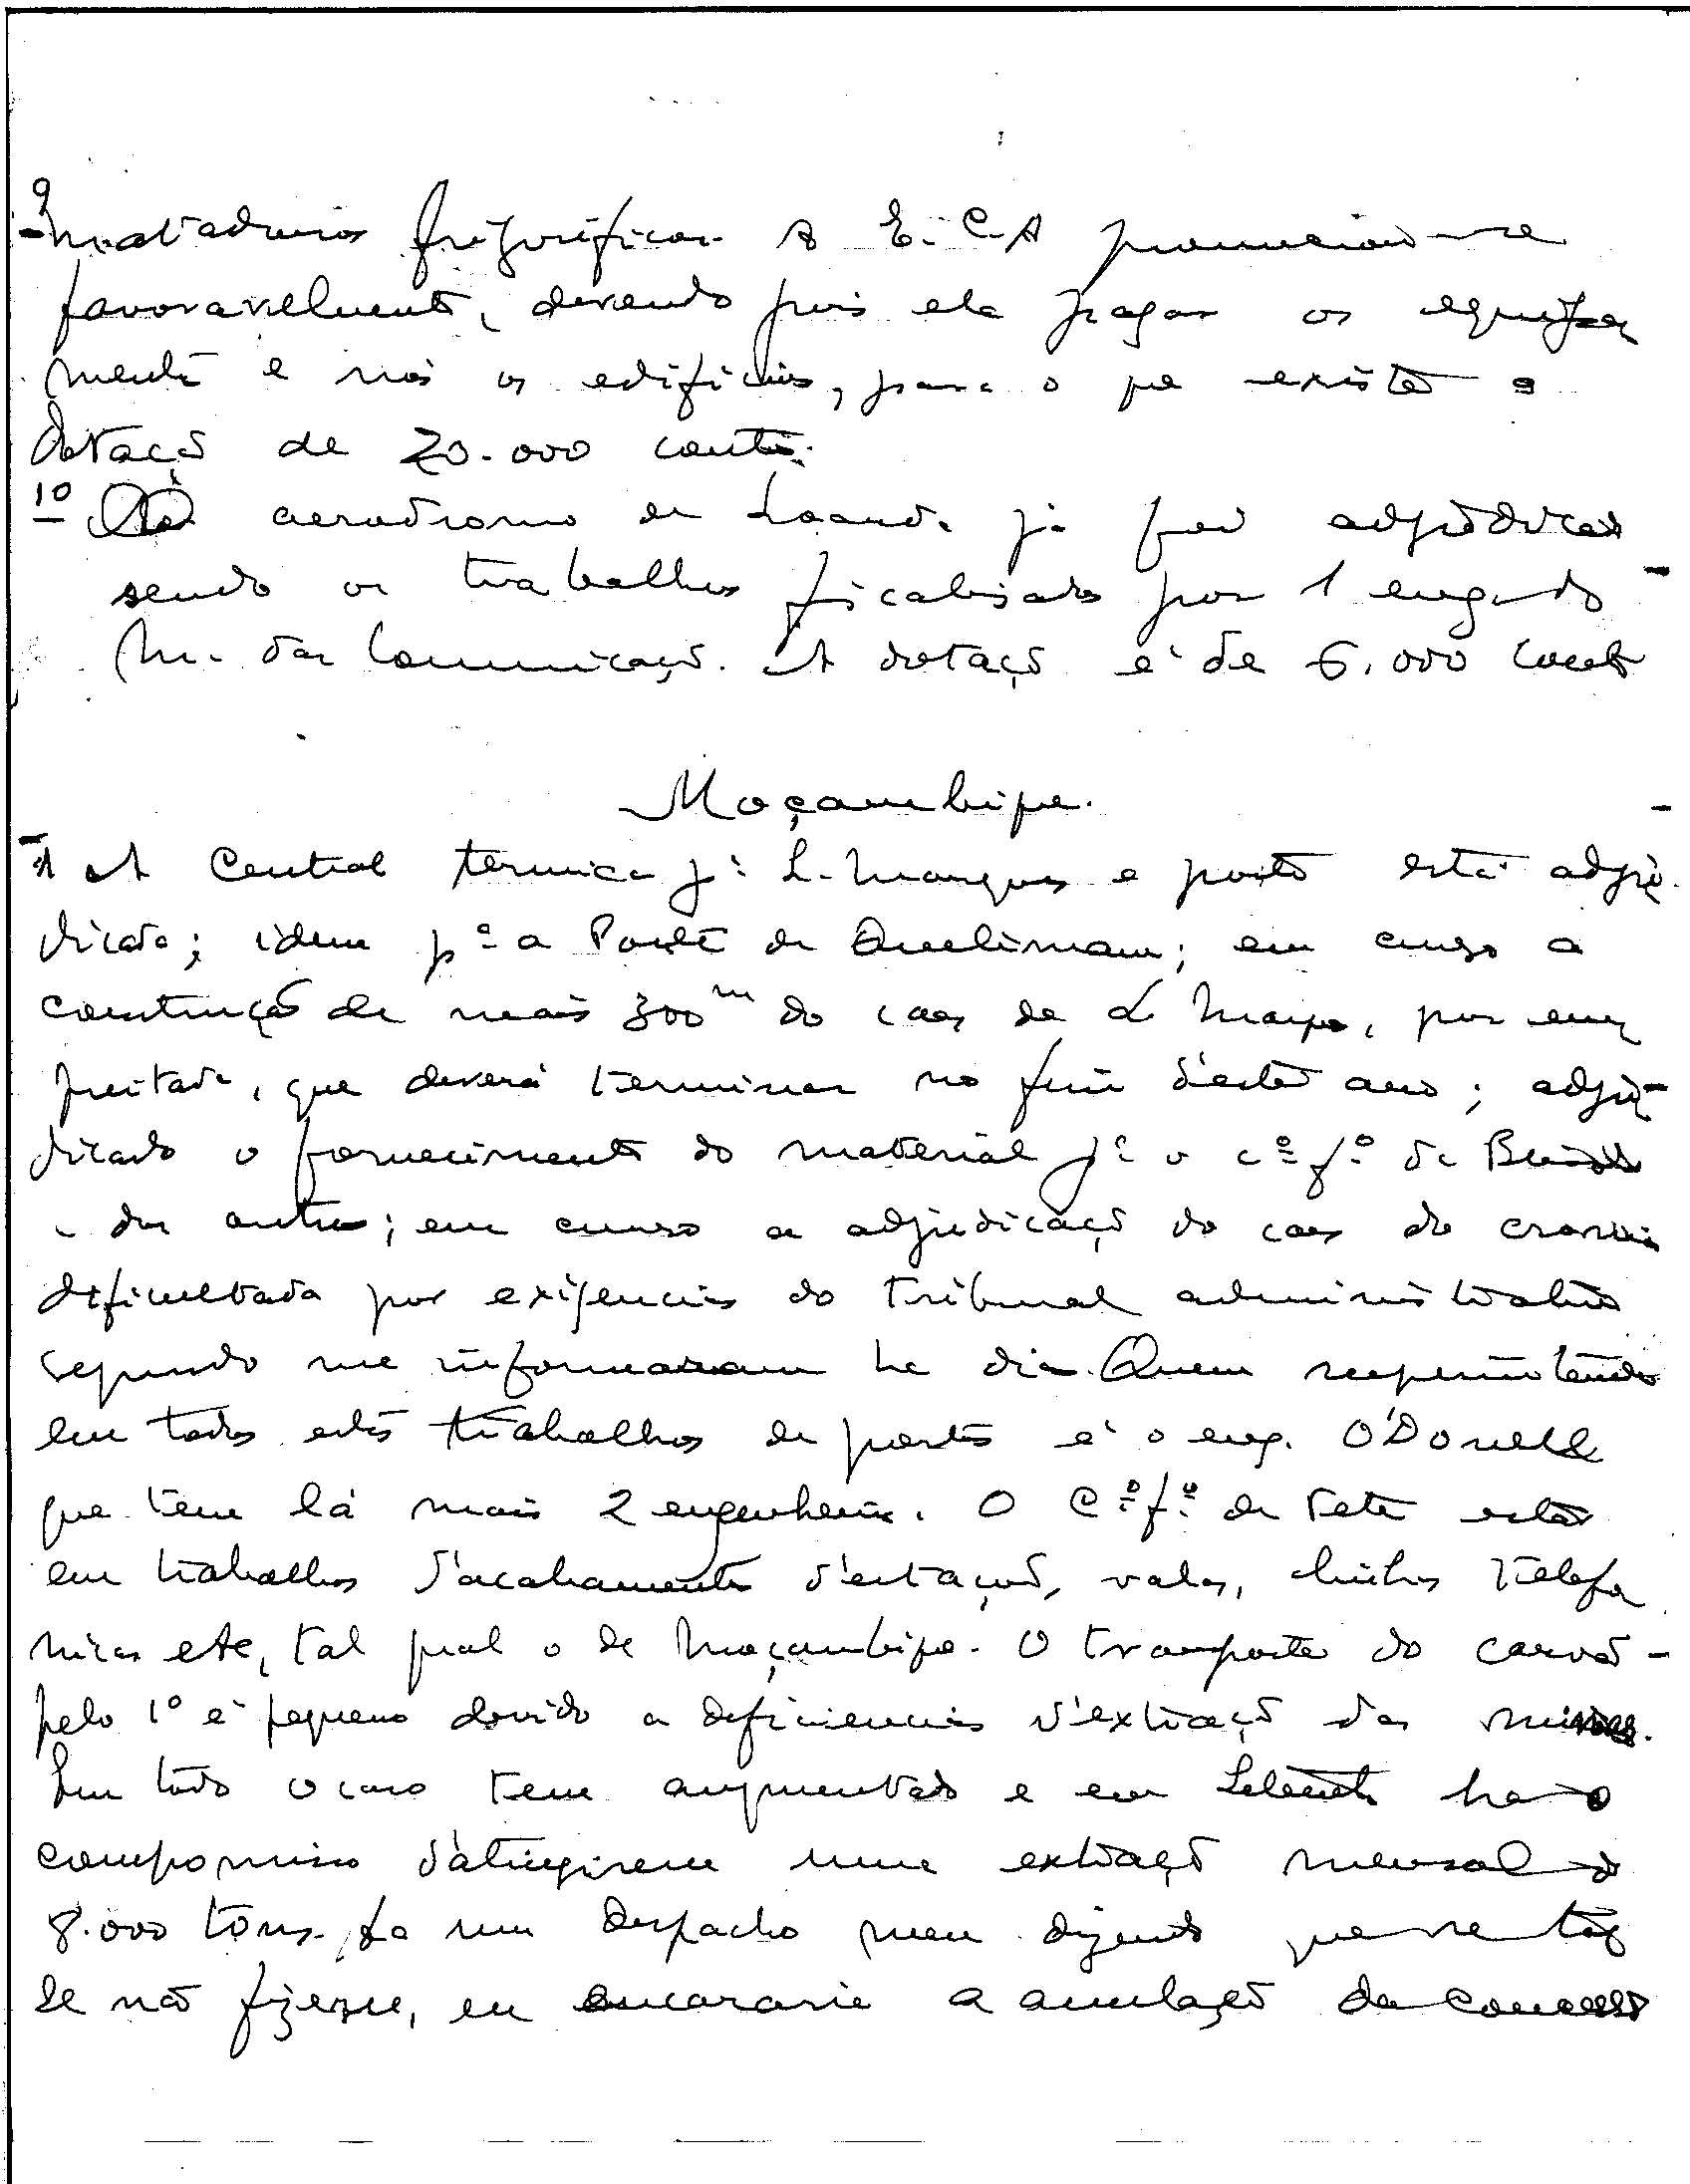 9
-Matadouros frigoríficos. A E.C.A pronunciou-se
favoravelmente, devendo pois ela pagar os equipa
mentos e nós os edifícios, para o que existe a
dotação de 20.000 contos.
10 aerodromo de Loanda já foi adjudicado
sendo os trabalhos fiscalisados por 1 eng. do
M. das Comunicações. A dotação é de 6.000 contos
Moçambique.
1 A Central termica pª L. Marques e porto está adju
dicada; idem pª a Ponte de Quelimane; em curso a
construção de mais 300m do caes de L Marques, por em
preitada, que deverá terminar no fim d'este ano; adju-
dicado o fornecimento do material pª o cº fº da Beira
e dos outros; em curso a adjudicação do caes do cromio
dificultada por exigencias do Tribunal administrativo
segundo me informaram ha dias. Quem superintende
em todos estes trabalhos de portos é o eng. O'Donell
que tem lá mais 2 engenheiros. O Cº fº de Tete está
em trabalhos d'acabamento d'estações, valas, linhas telefo
nicas etc, tal qual o de Moçambique. O transporte do carvão
pelo 1º é pequeno devido a deficiencias d'extração das minas.
Em todo o caso tem augmentado e em Setembro ha o
compromisso d'atingirem uma extração mensal de
8.000 tons. um despacho meu dizendo que se tal
se não fizesse, eu encararia a anulação da concessão